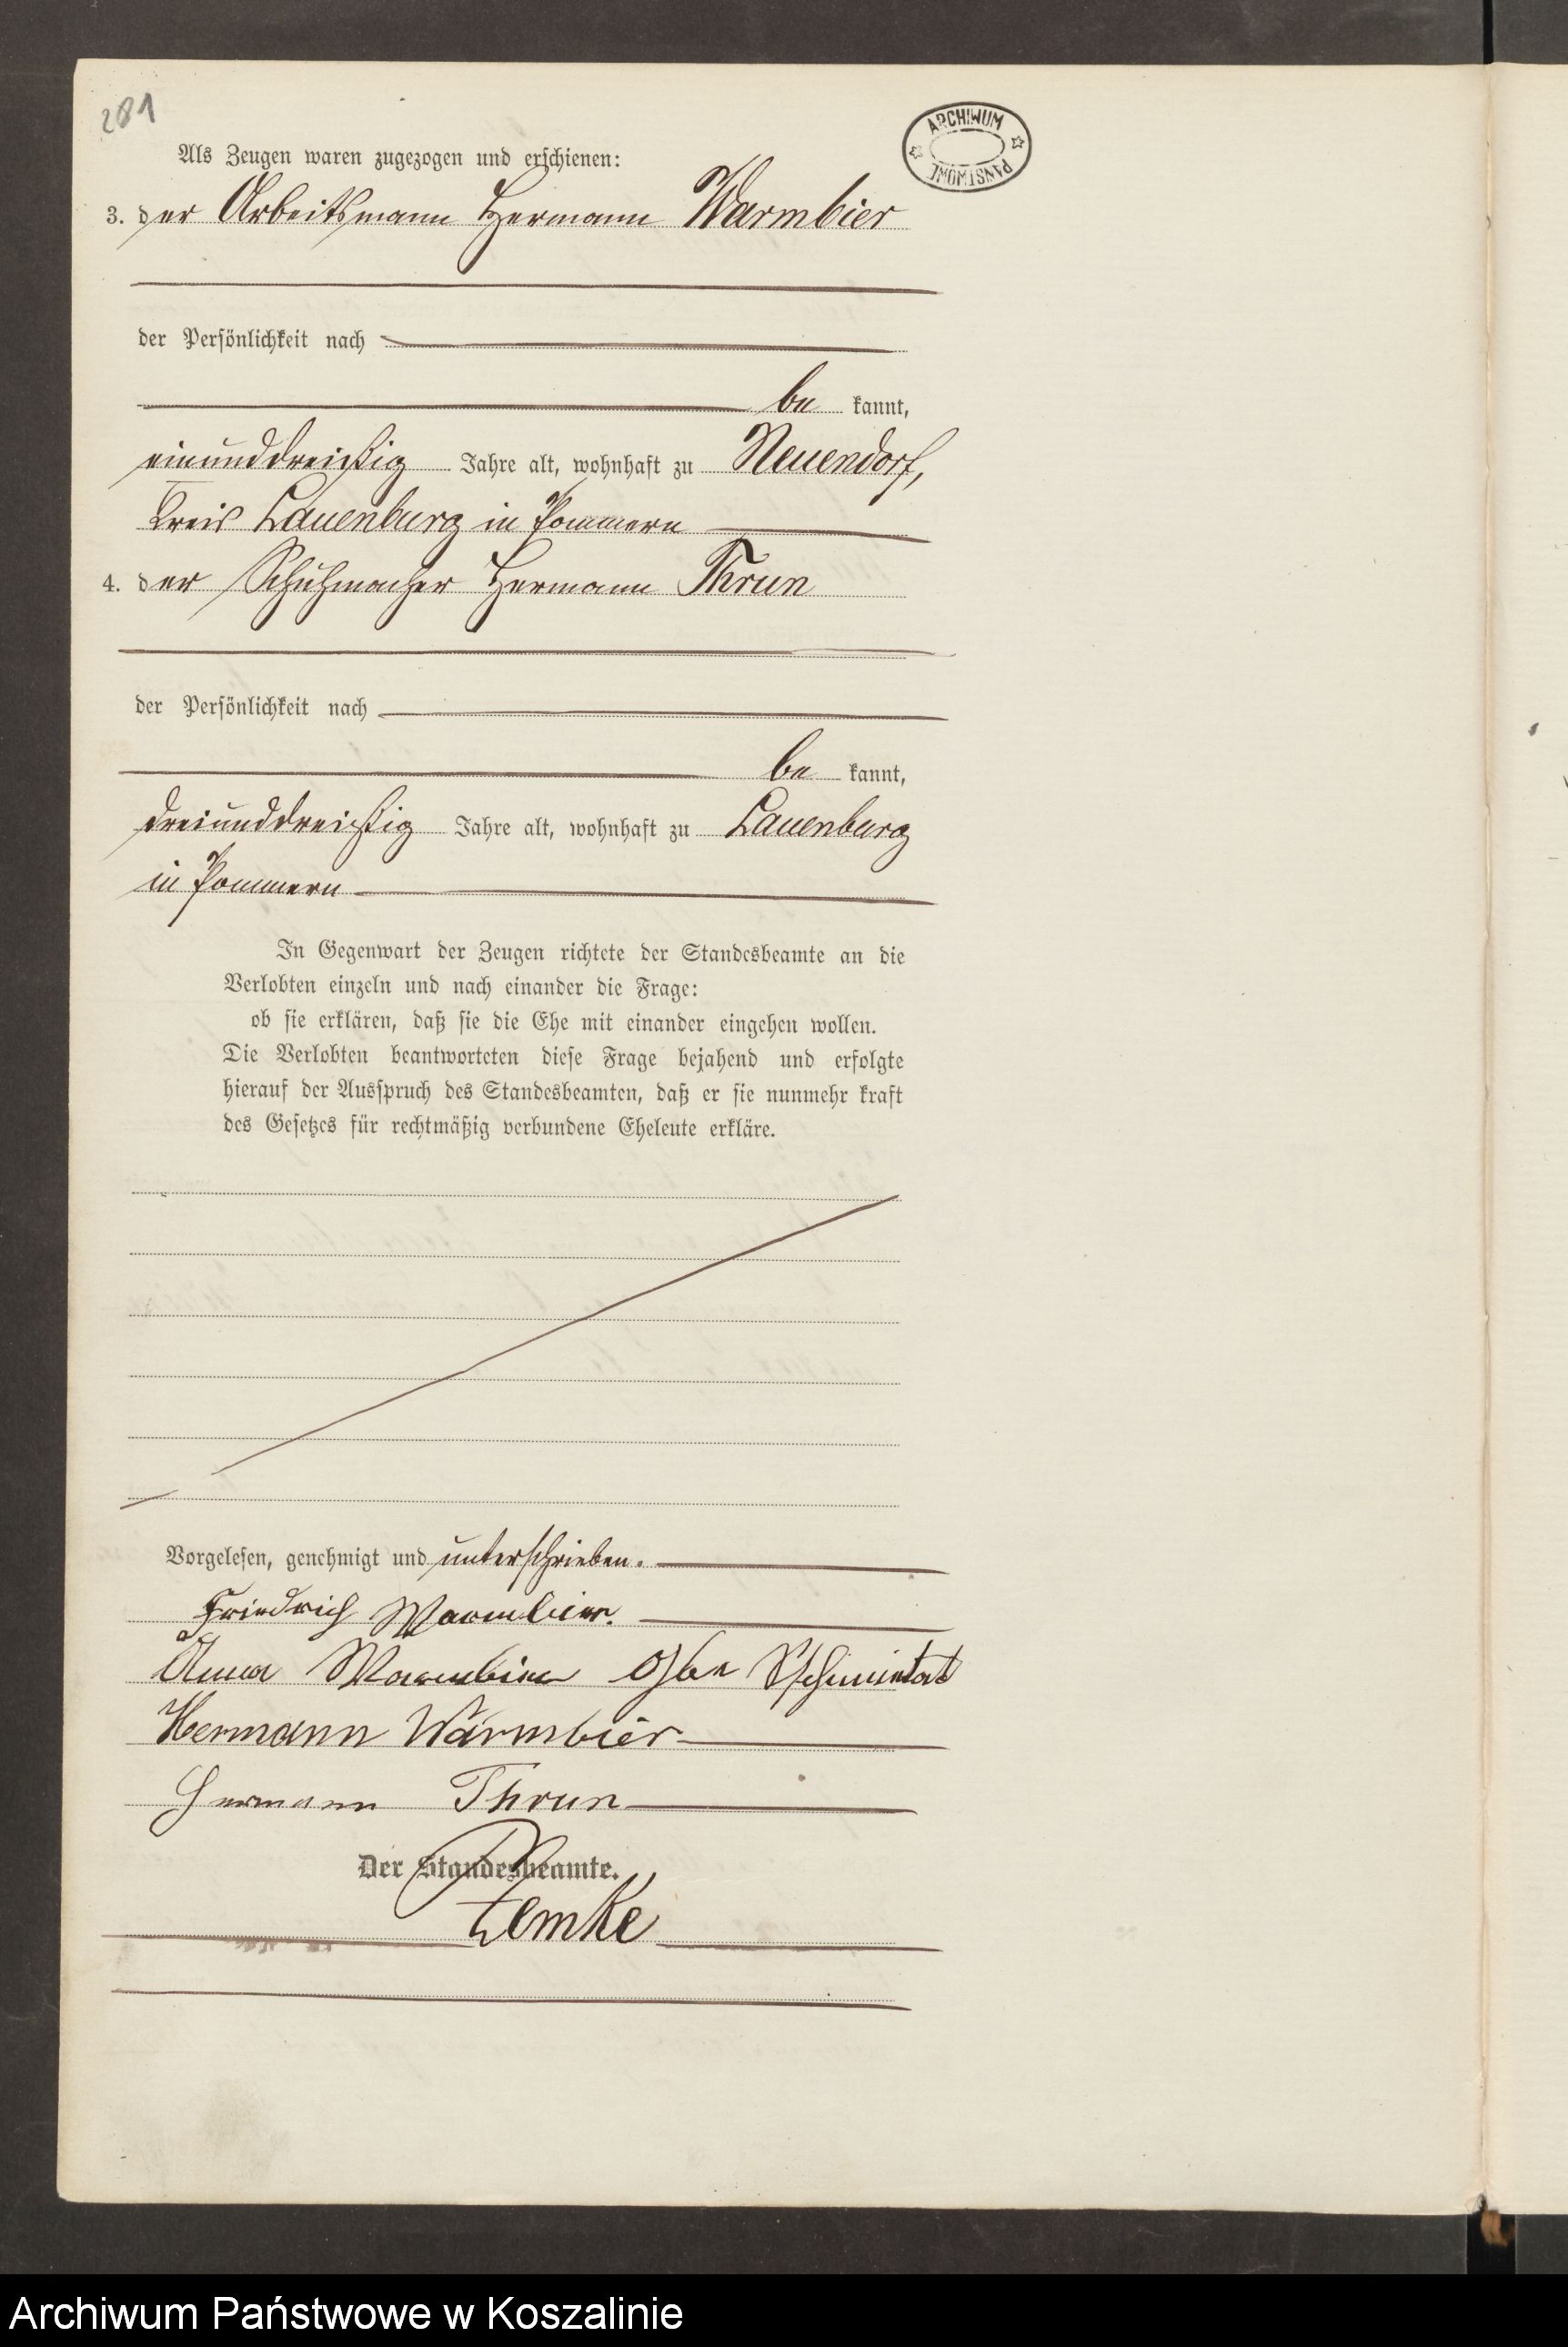 281
ARCHIWUM PAŃSTWOWE
Als Zeugen waren zugezogen und erschienen:
3. der Arbeitsmann Hermann Warmbier
der Persönlichkeit nach
be kannt,
einunddreißig Jahre alt, wohnhaft zu Neuendorf,
Kreis Lauenburg in Pommern
4. der Schuhmacher Hermann Thrun
der Persönlichkeit nach
be kannt,
dreiunddreißig Jahre alt, wohnhaft zu Lauenburg
in Pommern
In Gegenwart der Zeugen richtete der Standesbeamte an die
Verlobten einzeln und nach einander die Frage:
ob sie erklären, daß sie die Ehe mit einander eingehen wollen.
Die Verlobten beantworteten diese Frage bejahend und erfolgte
hierauf der Ausspruch des Standesbeamten, daß er sie nunmehr kraft
des Gesetzes für rechtmäßig verbundene Eheleute erkläre.
Vorgelesen, genehmigt und unterschrieben.
Friedrich Warmbier.
Anna Warmbier
Hermann Warmbier
Hermann Thrun
Der Standesbeamte.
Zemke
Archiwum Państwowe w Koszalinie